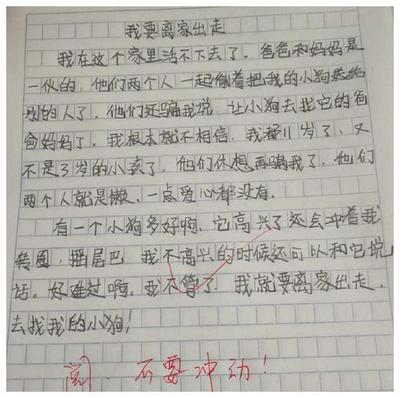 我要离家出走
我在这个家里活不下去了。爸爸和妈妈是
一伙的，他们两个人一起偷着把我的小狗送给
别的人了。他们还骗我说，让小狗去找它的爸
爸妈妈了。我根本就不相信，我都11岁了，又
不是3岁的小孩了，他们休想再骗我了。他们
两个人就是懒，一点爱心都没有。
有一个小狗多好啊，它高兴了还会冲着我
转圈，摇尾巴，我不高兴的时候还可以和它说
话。好难过啊，我不管了，我就要离家出走，
去找我的小狗！
阅 不要冲动！